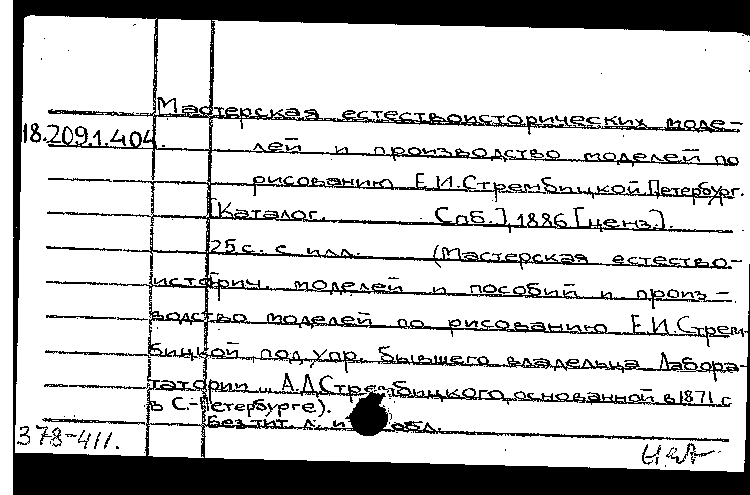 Мастерская естествоисторических моде-
18.209.1.404
лей и производство моделей по
рисованию Е.И.Стрембицкой. Петербург.
[Каталог. Спб.], 1886 [ценз.].
25 с. с илл. (Мастерская естество-
историч. моделей и пособий и произ-
водство моделей по рисованию Е.И.Стрем-
бицкой под упр. бывшего владельца Лабора-
татории А.Л.Стрембицкого, основанной в 1871 г
в С.-Петербурге).
Без тит. л. и обл.
378-411.